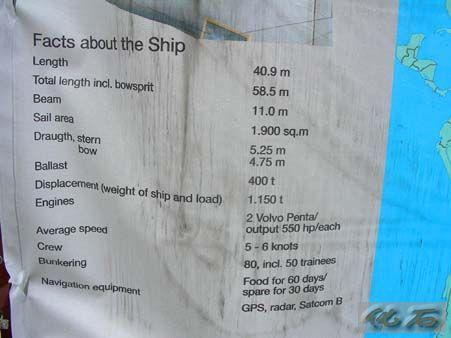 Facts about the Ship
Length 40.9 m
Total length incl. bowsprit 58.5 m
Beam 11.0 m
Sail area 1.900 sq.m
Draugth, stern 5.25 m
bow 4.75 m
Ballast 400 t
Displacement (weight of ship and load) 1.150 t
Engines 2 Volvo Penta/
output 550 hp/each
Average speed 5 - 6 knots
Crew 80, incl. 50 trainees
Bunkering Food for 60 days/
spare for 30 days
Navigation equipment GPS, radar, Satcom B